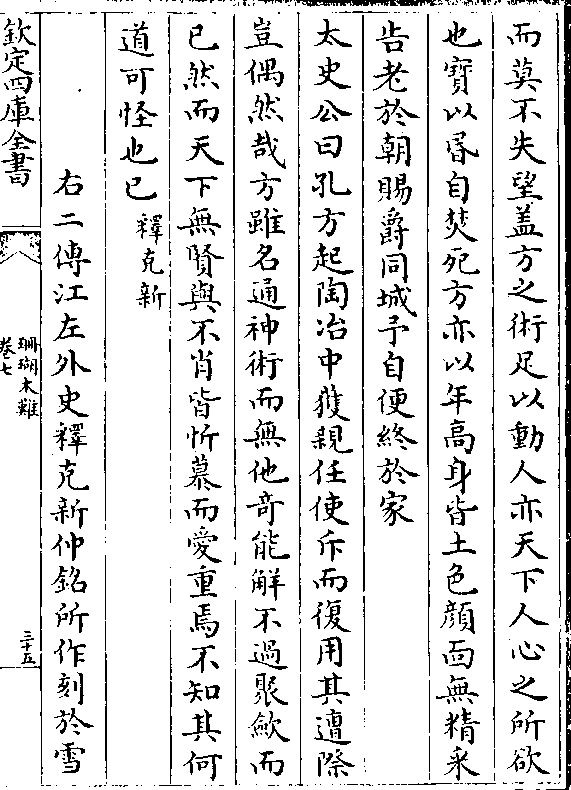 而莫不失望盖方之術足以動人亦天下人心之所欲
也寳以㬰自焚死方亦以年高身皆土色顔面無精采
告老於朝賜爵同城予自便終於家
太史公曰孔方起陶冶中獲親任使斥而復用其遭際
豈偶然哉方雖名通神術而無他竒能解不過聚歛而
已然而天下無賢與不肖皆忻慕而愛重焉不知其何
道可怪也已釋克新
右二傳江左外史釋克新仲銘所作刻於雪
欽定四庫全書
珊瑚木難
卷七
三十五